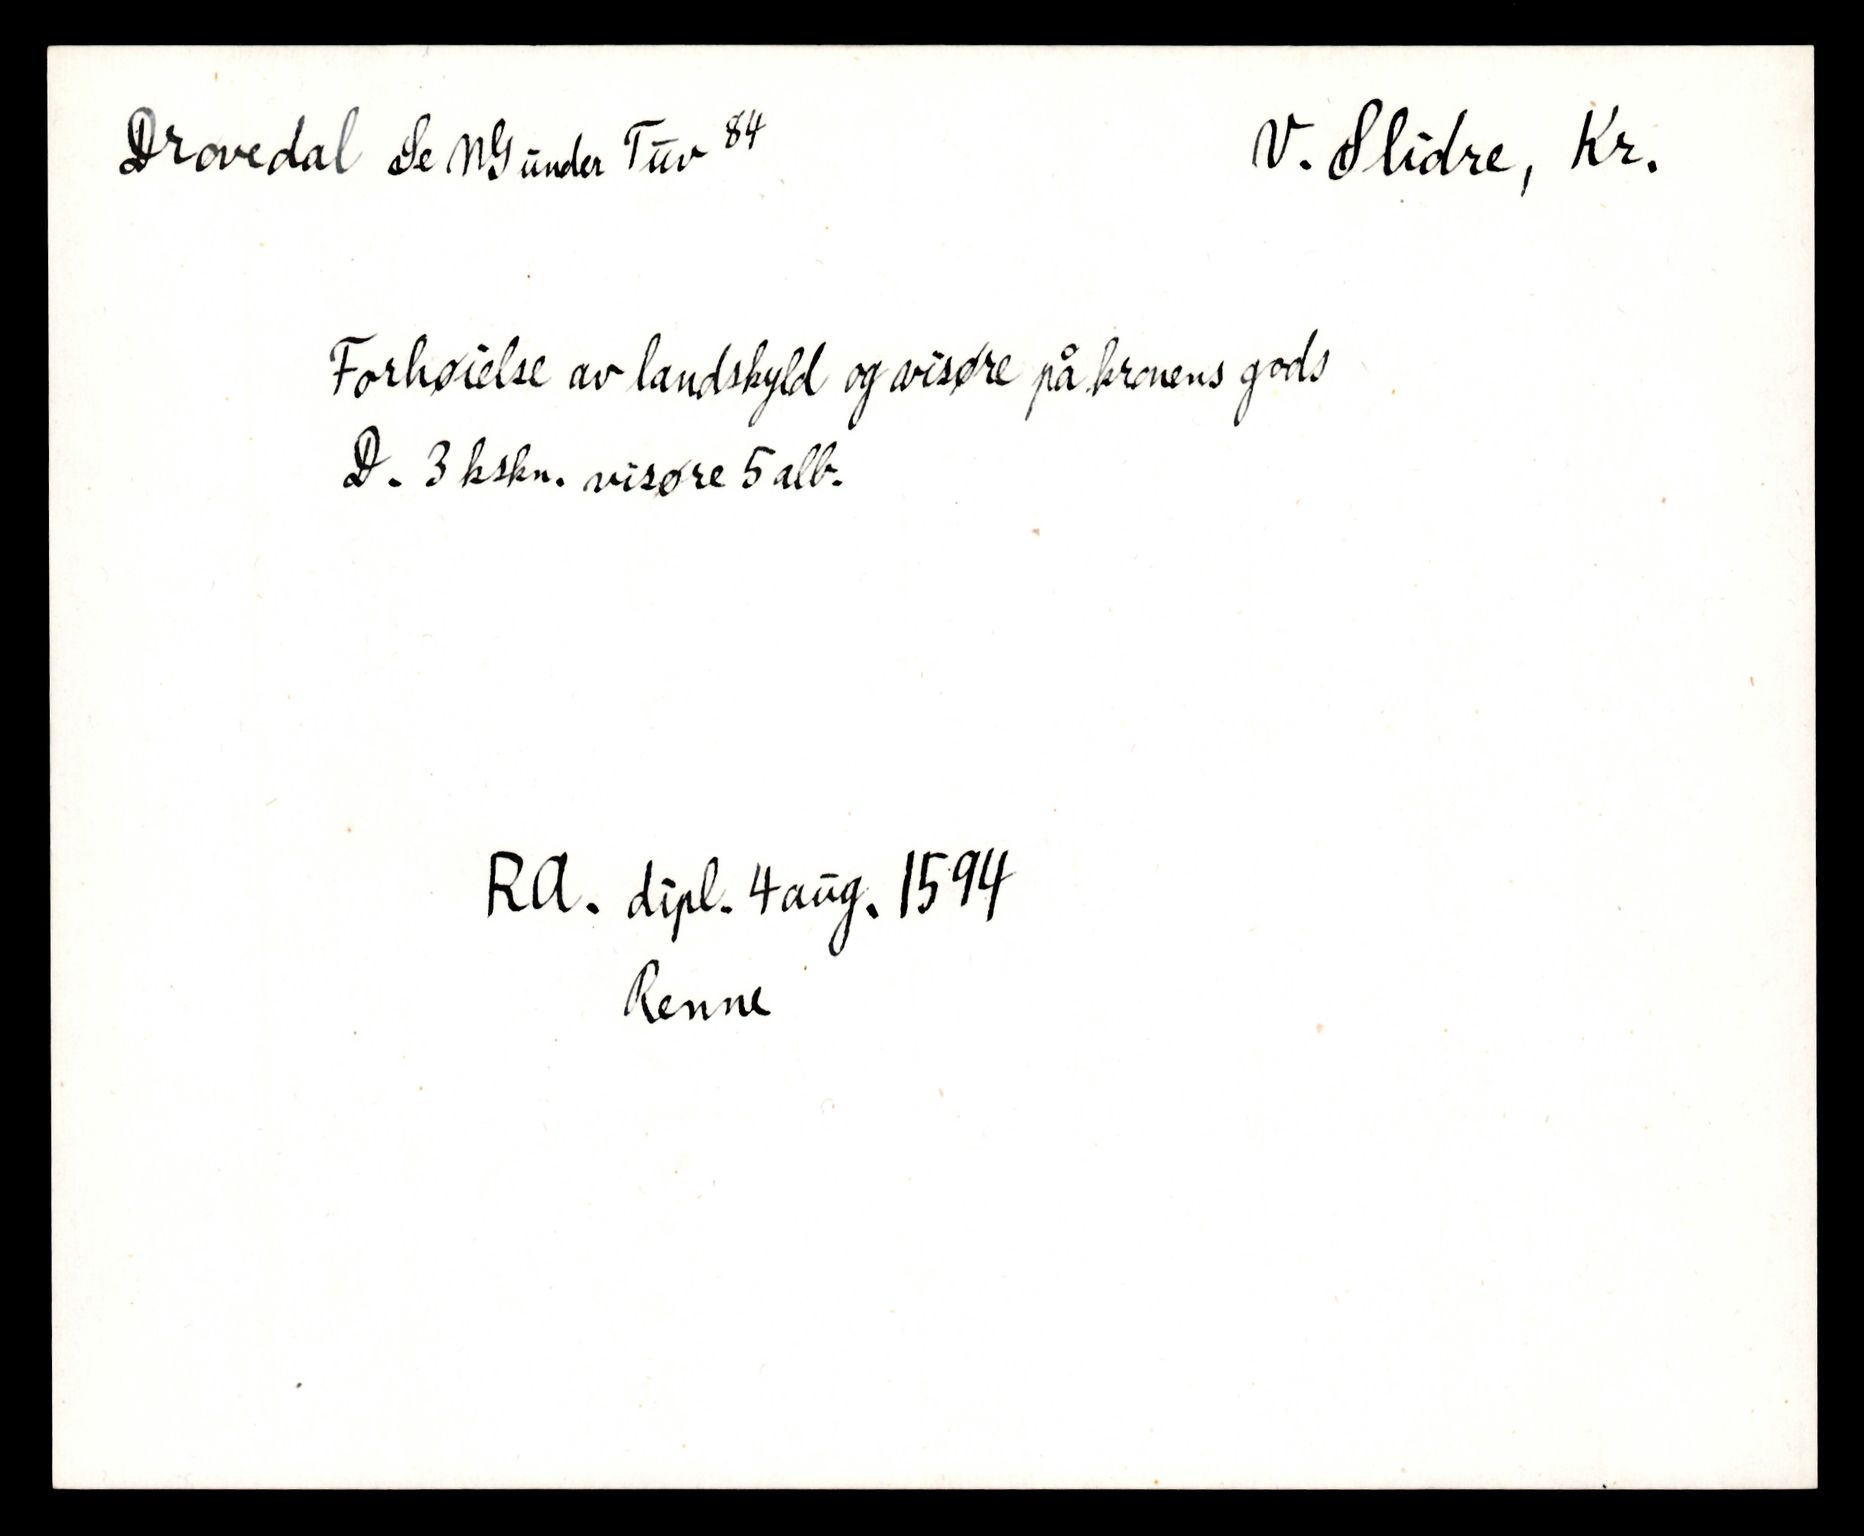 Drovedal Se NG under Tuv 84 V. Slidre, Kr.
Forhøielse av landskyld og visøre på kronens gods
D. 3 kskn. visøre 5 alb.
RA. dipl. 4 aug. 1594
Renne